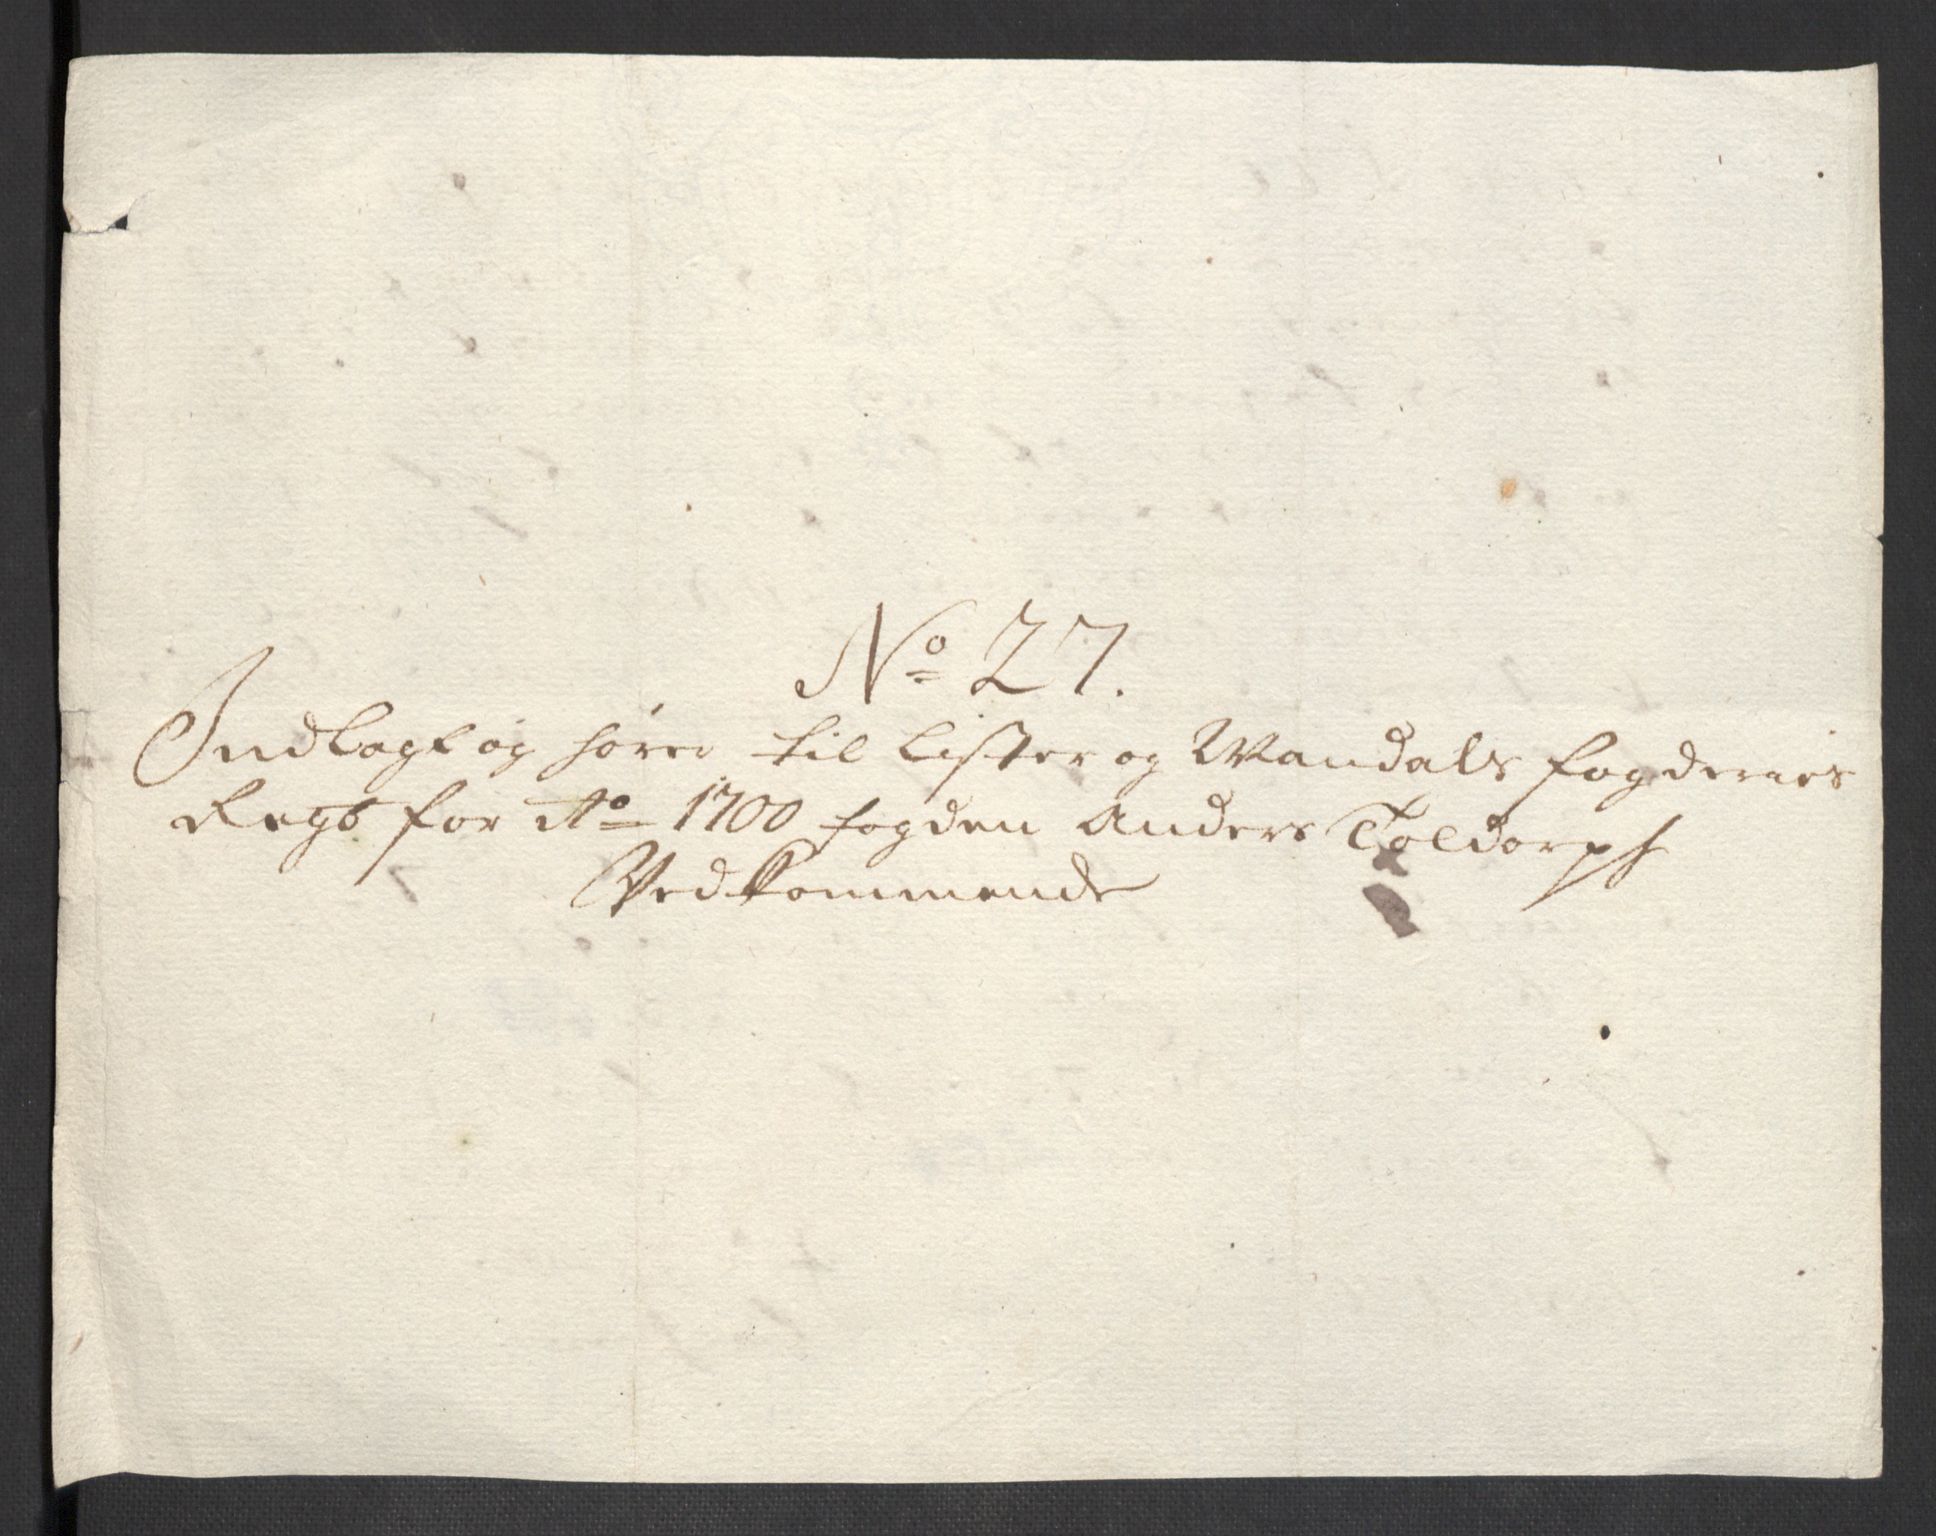 No 27.
Indlagt og hører til Lister og Mandals fogderies
Regs for Ao 1700 fogden Anders Toldorph
Vedkommende